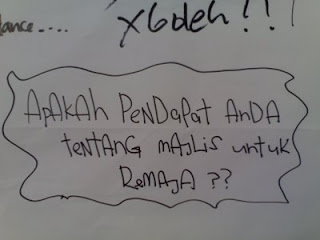 lance....
x boleh!!!
APAKAH PENDAPAT ANDA
tENTANG MAJLIS untuk
REMAJA ??